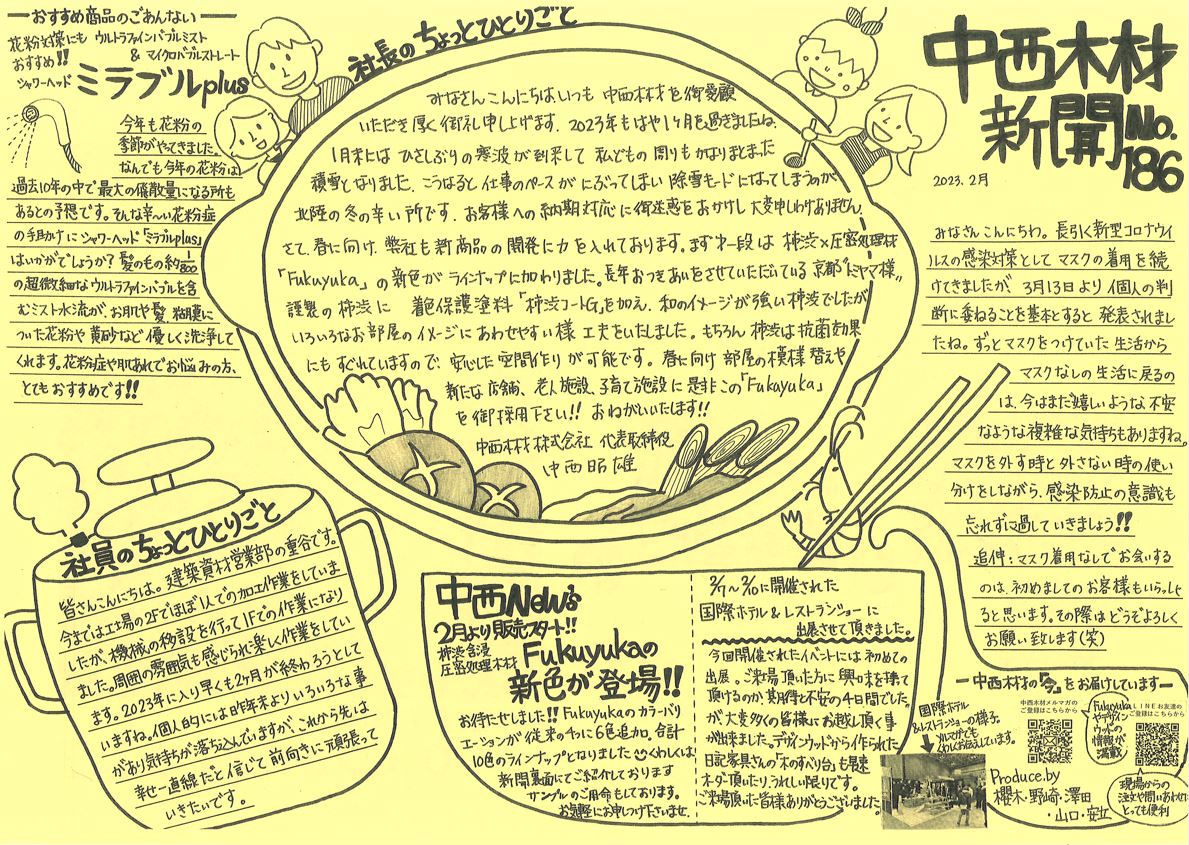 中西木材
新聞 No.
186
2023.2月
みなさんこんにちわ。長引く新型コロナウイ
ルスの感染対策として マスクの着用を続
けてきましたが、3月13日より個人の判
断に委ねることを基本とすると発表されまし
たね。ずっとマスクをつけていた生活から
マスクなしの生活に戻るの
は、今はまだ嬉しいような不安
なような複雑な気持ちもありますね。
マスクを外す時と外さない時の使い
分けをしながら、感染防止の意識も
忘れずに過していきましょう!!
追伸:マスク着用なしでお会いする
のは、初めましてのお客様もいらっしゃ
ると思います。その際はどうぞよろしく
お願い致します(笑)
社長のちょっとひとりごと
みなさんこんにちは、いつも 中西木材を御愛顧
いただき厚く御礼申し上げます。2023年もはや1ヶ月を過ぎましたね。
1月末には ひさしぶりの寒波が到来して 私どもの周りもかなりまとまた
積雪となりました。こうなると 仕事のペースが にぶってしまい 除雪モードになってしまうのが
北陸の冬の辛い所です。お客様への納期対応に御迷惑をおかけし大変申しわけありません。
さて、春に向け、弊社も新商品の開発に力を入れております。まず第一段は 柿渋×圧密処理材
「Fukuyuka」の新色が ラインナップに加わりました。長年おつきあいをさせていただいている 京都“トミヤマ様”
謹製の柿渋に 着色保護塗料「柿渋コートG」を加え、和のイメージが強い柿渋でしたが
いろいろなお部屋のイメージにあわせやすい様 工夫をいたしました。もちろん 柿渋は抗菌効果
にもすぐれていますので、安心した空間作りが可能です。春に向け 部屋の模様替えや
新たな店舗、老人施設、子育て施設に是非この「Fukuyuka」
を御採用下さい!! おねがいいたします!!
中西木材株式会社 代表取締役
中西昭雄
おすすめ商品のごあんない
花粉対策にも ウルトラファインバブルミスト
おすすめ!! & マイクロバブルストレート
シャワーヘッド ミラブルplus
今年も花粉の
季節がやってきました。
なんでも今年の花粉は
過去10年の中で最大の飛散量になる所も
あるとの予想です。そんな辛〜い花粉症
の手助けにシャワーヘッド「ミラブルplus」
はいかがでしょうか? 髪のもの約1/800
の超微細なウルトラファインバブルを含
むミスト水流が、お肌や髪、鼻に
ついた花粉や黄砂など優しく洗浄して
くれます。花粉症や肌あれでお悩みの方、
とてもおすすめです!!
社員のちょっとひとりごと
皆さんこんにちは。建築資材営業部の重谷です。
今までは工場の2Fでほぼ1人での加工作業をしていま
したが、機械の移設を行って1Fでの作業になり
ました。周囲の雰囲気も感じられ楽しく作業をしてい
ます。2023年に入り早くも2ヶ月が終わろうとして
いますね。個人的には昨年末よりいろいろな事
があり気持ちが落ち込んでいますが、これから先は
幸せ一直線だと信じて前向きに頑張って
いきたいです。
中西New's
2月より販売スタート!!
柿渋含浸
圧密処理木材 Fukuyukaの
新色が登場!!
お待たせしました!! Fukuyukaのカラーバリ
エーションが従来の4つに6色追加。合計
10色のラインナップとなりました くわしくは
新聞裏面にてご紹介しております
サンプルのご用命もしております。
お気軽にお申しつけ下さいませ。
2/7〜2/10に開催された
国際ホテル&レストランショーに
出展させて頂きました。
今回開催されたイベントには初めての
出展。ご来場頂いた方に興味を持て
頂けるのか、期待と不安の4日間でした
が大変多くの皆様にお越し頂く事
が出来ました。デザインウッドから作られた
日記家具さんの「木のすべり台」も早速
オーダー頂いたり、うれしい限りです。
ご来場頂いた皆様ありがとうございました。
中西木材の「今」をお届けしています
中西木材メルマガの
ご登録はこちらから
LINEお友達の
ご登録はこちらから
国際ホテル
&レストランショーの様子。
メルマガでも
くわしくお伝えしています。
Fukuyuka
やデザイン
ウッドの
情報が
満載
現場からの
注文や問い合わせに
とっても便利
Produce.by
櫻木・野崎・澤田
・山口・安立